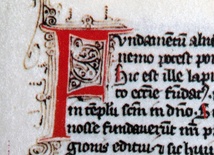 Fundamentū aliu
nemo potest pon
hic est ille lap
to eccīe fundat
in templu sem in dn̄o. S
nosse fundaverūt in p
gionis editur ⁊ sic huı